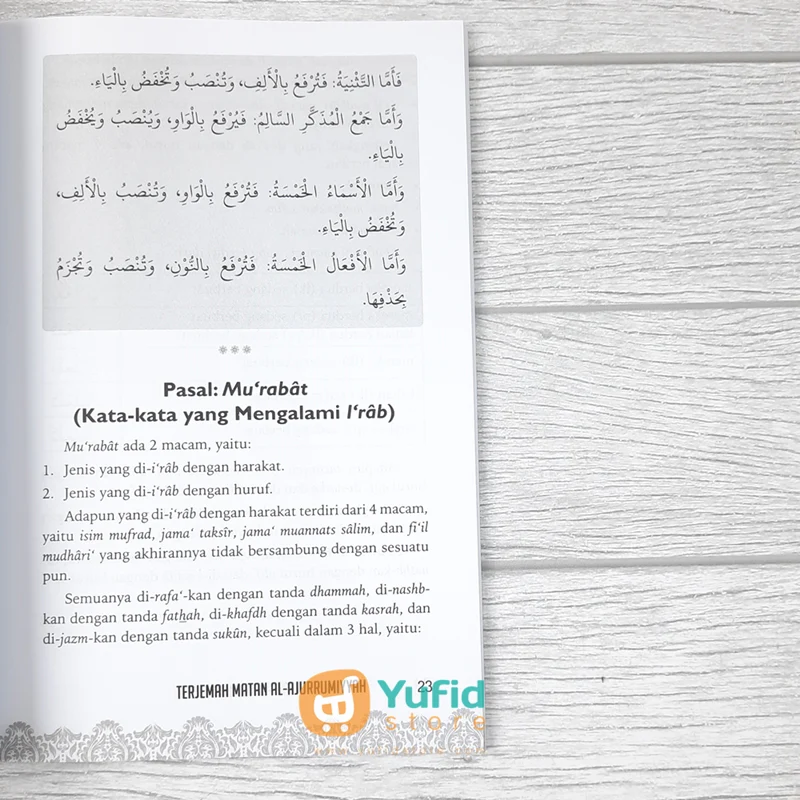 فَأَمَّا التَّثْنِيَةُ: فَتُرْفَعُ بِالْأَلِفِ، وَتُنْصَبُ وَتُخْفَضُ بِالْيَاءِ.
وَأَمَّا جَمْعُ الْمُذَكَّرِ السَّالِمُ: فَيُرْفَعُ بِالْوَاوِ، وَيُنْصَبُ وَيُخْفَضُ
بِالْيَاءِ.
وَأَمَّا الْأَسْمَاءُ الْخَمْسَةُ: فَتُرْفَعُ بِالْوَاوِ، وَتُنْصَبُ بِالْأَلِفِ،
وَتُخْفَضُ بِالْيَاءِ.
وَأَمَّا الْأَفْعَالُ الْخَمْسَةُ: فَتُرْفَعُ بِالنُّوْنِ، وَتُنْصَبُ وَتُجْزَمُ
بِحَذْفِهَا.
***
Pasal: Mu‘rabât
(Kata-kata yang Mengalami I‘râb)
Mu‘rabât ada 2 macam, yaitu:
1. Jenis yang di-i‘râb dengan harakat.
2. Jenis yang di-i‘râb dengan huruf.
Adapun yang di-i‘râb dengan harakat terdiri dari 4 macam,
yaitu isim mufrad, jama‘ taksîr, jama‘ muannats sâlim, dan fi‘il
mudhâri‘ yang akhirannya tidak bersambung dengan sesuatu
pun.
Semuanya di-rafa‘-kan dengan tanda dhammah, di-nashb-
kan dengan tanda fatẖah, di-khafdh dengan tanda kasrah, dan
di-jazm-kan dengan tanda sukûn, kecuali dalam 3 hal, yaitu:
TERJEMAH MATAN AL-AJURRUMIYYAH 23
Yufid
store